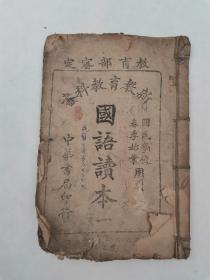 教育部審定
新教育教科書
國民學校
春季始業用
國語讀本
一
中華書局印行